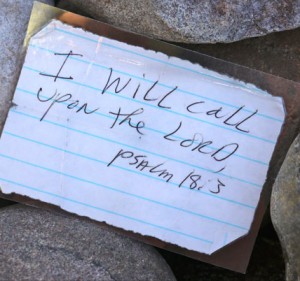 I Will call
upon the LORD,
PSAlm 18:3